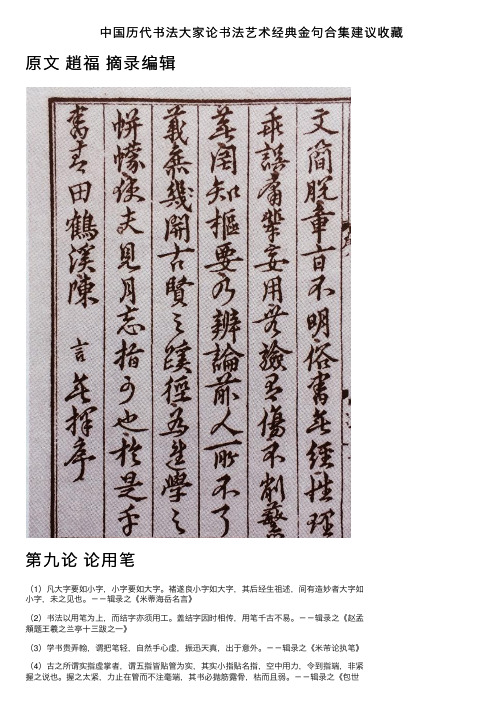 中国历代书法大家论书法艺术经典金句合集建议收藏
原文 趙福 摘录编辑
文簡脫章旨不明俗書無經性理
乖誤庸輩妄用無驗有傷不削繁
蕪罔知樞要乃辨論前人所不了
義庶幾開古賢之蹊徑為進學之
帡幪後夫見月忘指可也於是乎
書青田鶴溪陳 言無擇序
第九论 论用笔
（1）凡大字要如小字，小字要如大字。褚遂良小字如大字，其后经生祖述，间有造妙者大字如
小字，未之见也。－－辑录之《米蒂海岳名言》
（2）书法以用笔为上，而结字亦须用工。盖结字因时相传，用笔千古不易。－－辑录之《赵孟
頫题王羲之兰亭十三跋之一》
（3）学书贵弄翰，谓把笔轻，自然手心虚，振迅天真，出于意外。－－辑录之《米芾论执笔》
（4）古之所谓实指虚掌者，谓五指皆贴管为实，其实小指贴名指，空中用力，令到指端，非紧
握之说也。握之太紧，力止在管而不注毫端，其书必抛筋露骨，枯而且弱。－－辑录之《包世